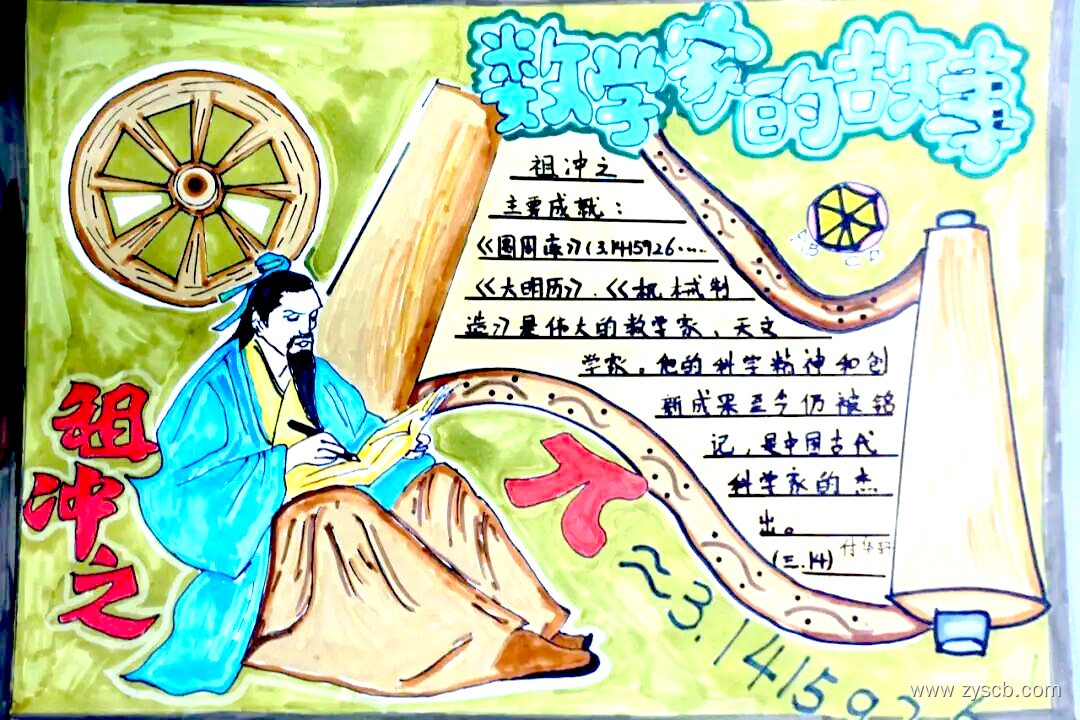 数学家的故事
祖冲之
主要成就：
《圆周率》(3.1415926....
《大明历》.《机械制
造》是伟大的数学家、天文
学家。他的科学精神和创
新成果至今仍被铭
记，是中国古代
科学家的杰
出。
(三.14)
A B C D
祖冲之
π
≈3.1415926
www.zyscb.com